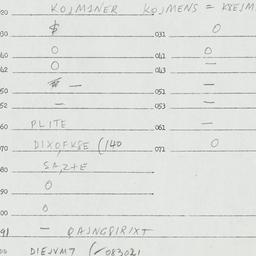 20 KOJMINER KOJMENS = KSEJM
30 $ 031 0
40 0 041 0
42 0 043 —
50 — 051 —
52 — 053 —
60 PLITE 061 —
70 DIXO,FKSE (140 071 0
80 SA,2+E
90 0
00 0
91 — QAJNGPIRIXT
DIEJVM7 (-083021